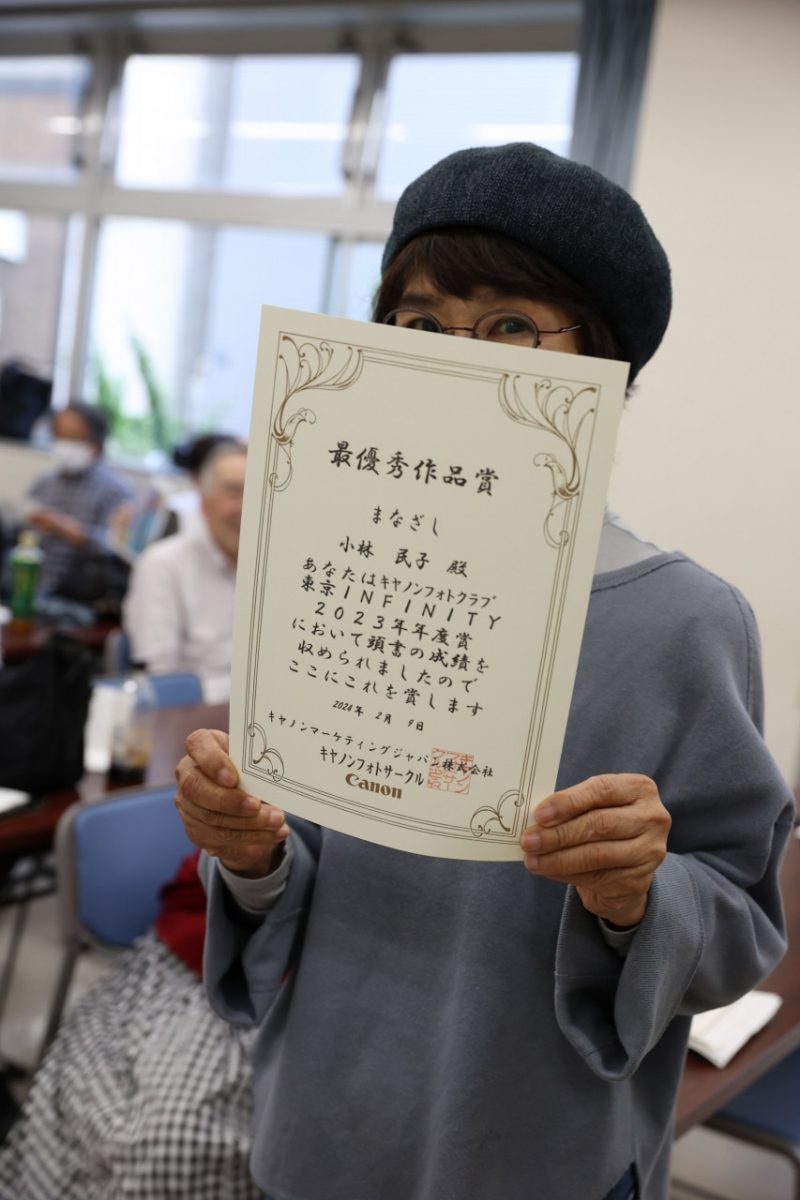 最優秀作品賞
まなざし
小林 民子 殿
あなたはキヤノンフォトクラブ
東京INFINITY
2023年年度賞
において頭書の成績を
収められましたので
ここにこれを賞します
2024年 2月 9日
キヤノンマーケティングジャパン株式会社
キヤノンフォトサークル
Canon